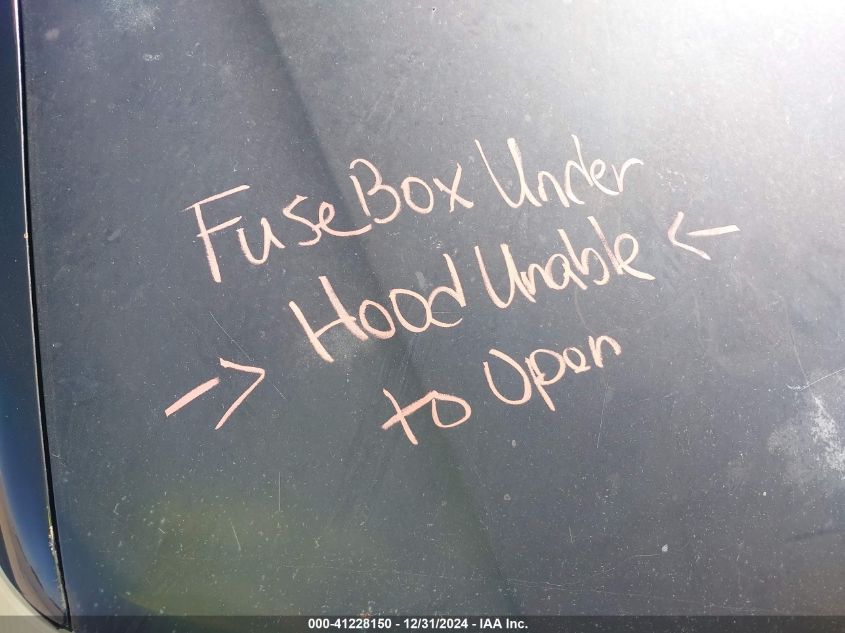 FuseBox Under
Hood Unable ←
→ to Open
000-41228150 - 12/31/2024 - IAA Inc.